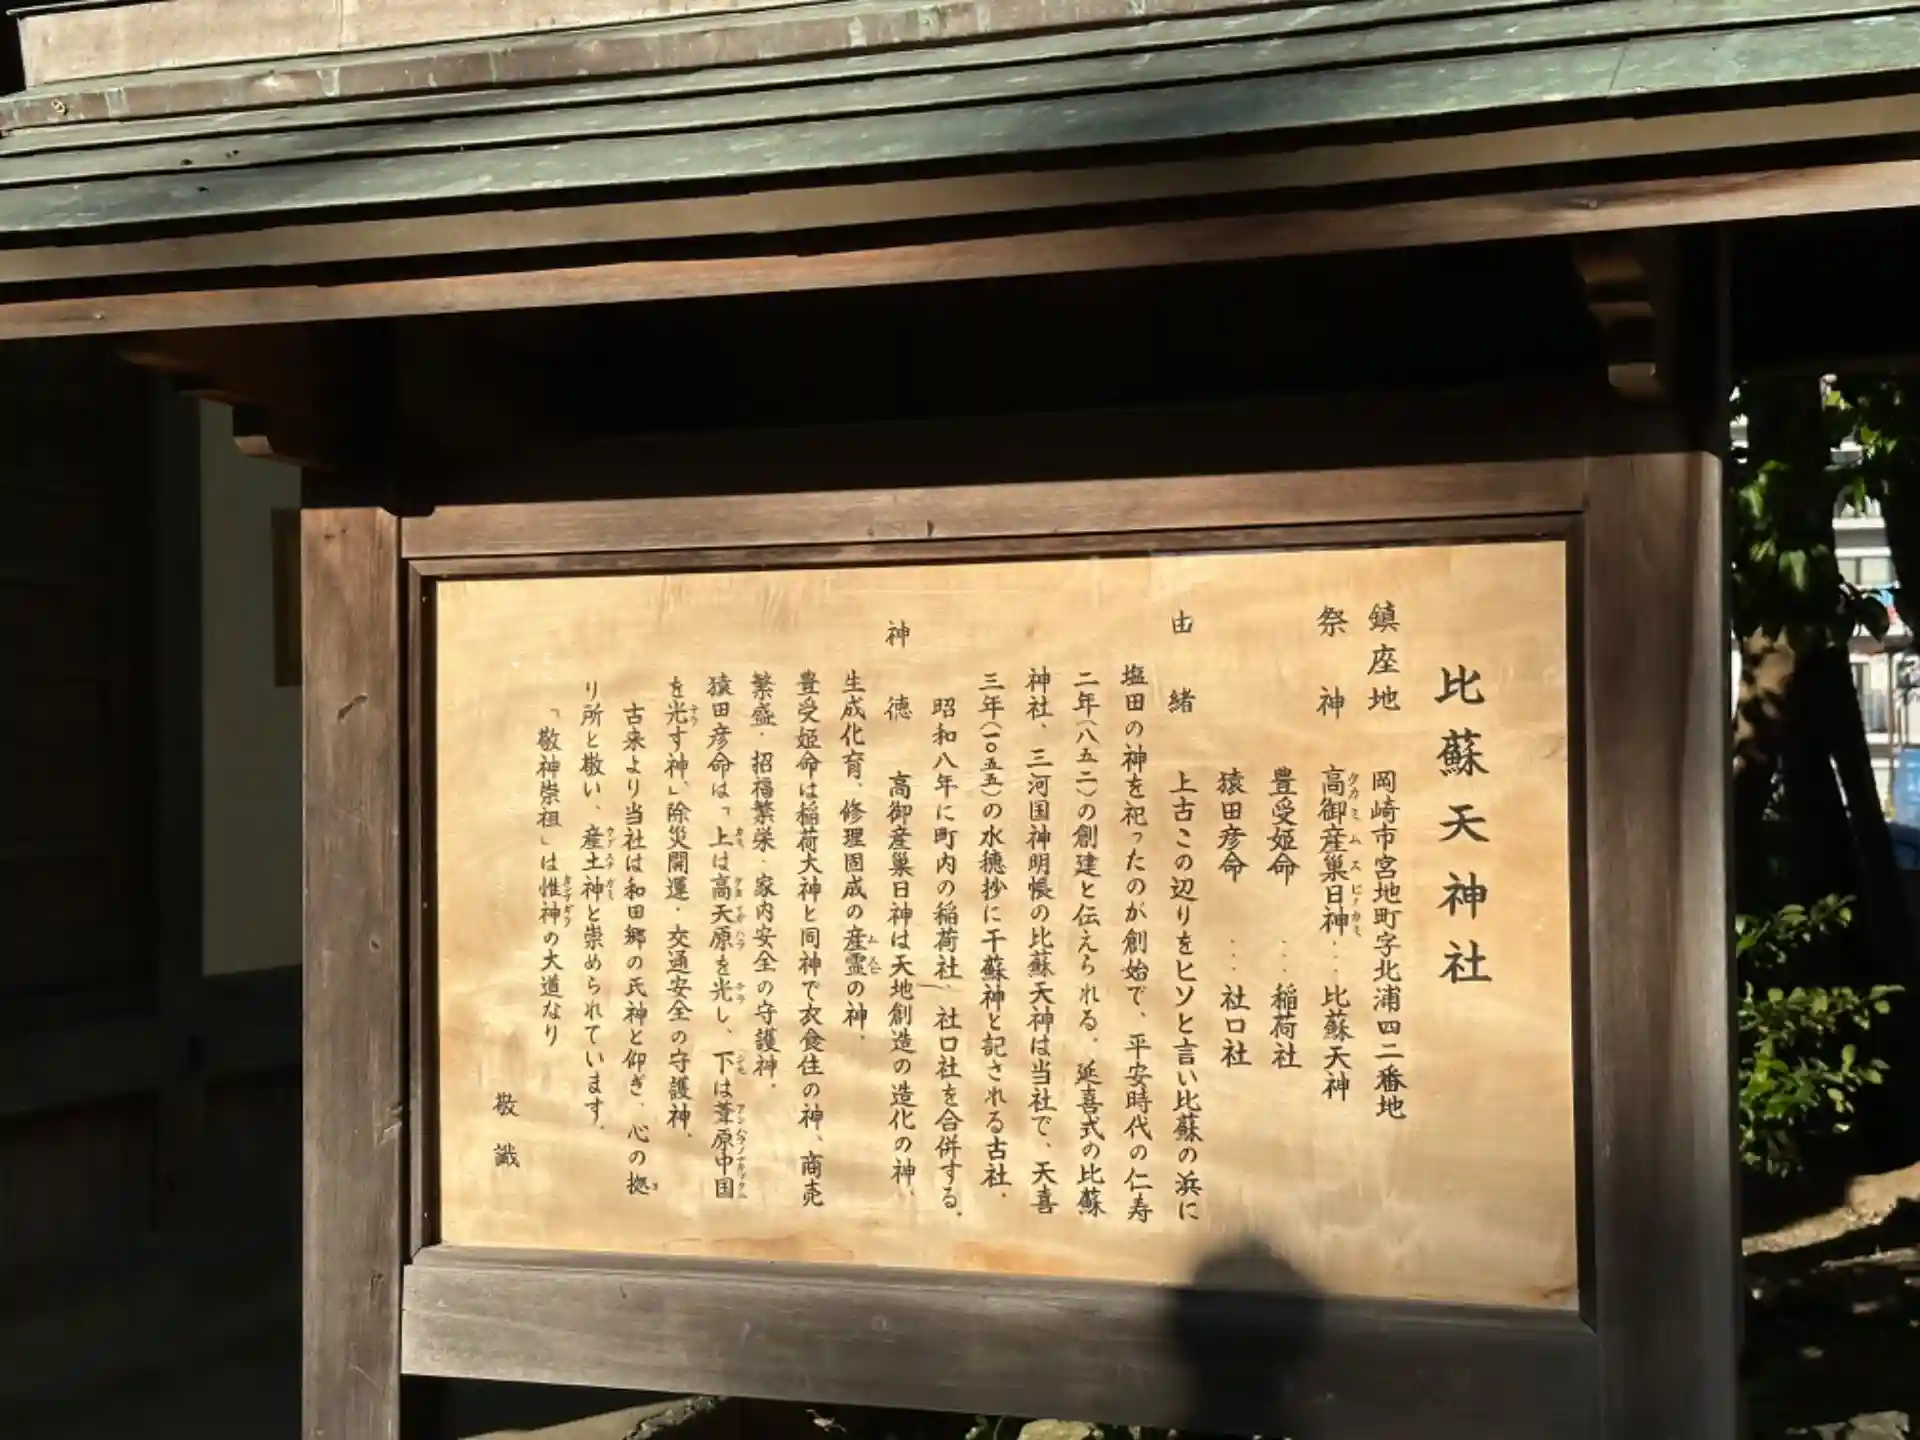 比蘇天神社
鎮座地 岡崎市宮地町字北浦四二番地
祭神 高御産巣日神…比蘇天神
豊受姫命…稲荷社
猿田彦命…社口社
由緒 上古この辺りをヒソと言い比蘇の浜に
塩田の神を祀ったのが創始で、平安時代の仁寿
二年(八五二)の創建と伝えられる。延喜式の比蘇
神社、三河国神明帳の比蘇天神は当社で、天喜
三年(一〇五五)の水穂抄に干蘇神と記される古社。
昭和八年に町内の稲荷社、社口社を合併する。
神徳 高御産巣日神は天地創造の造化の神、
生成化育、修理固成の産霊の神。
豊受姫命は稲荷大神と同神で衣食住の神、商売
繁盛・招福繁栄・家内安全の守護神。
猿田彦命は「上は高天原を光し、下は葦原中国
を光す神」除災開運・交通安全の守護神。
古来より当社は和田郷の氏神と仰ぎ、心の拠
り所と敬い、産土神と崇められています。
「敬神崇祖」は惟神の大道なり
敬識